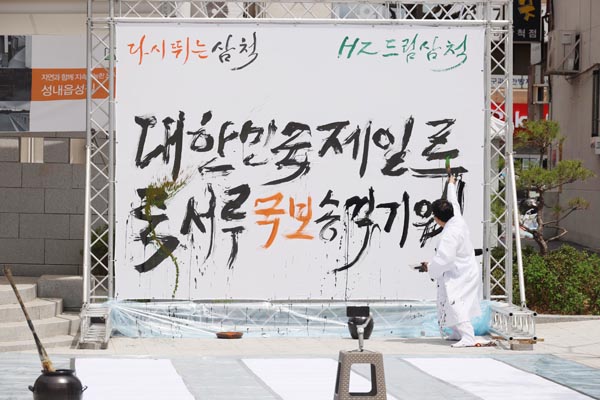 다시 뛰는 삼척
HZ드림삼척
대한민국제일루
죽서루 국보 승격기원
자연과 함께 지속
성내읍성
척점